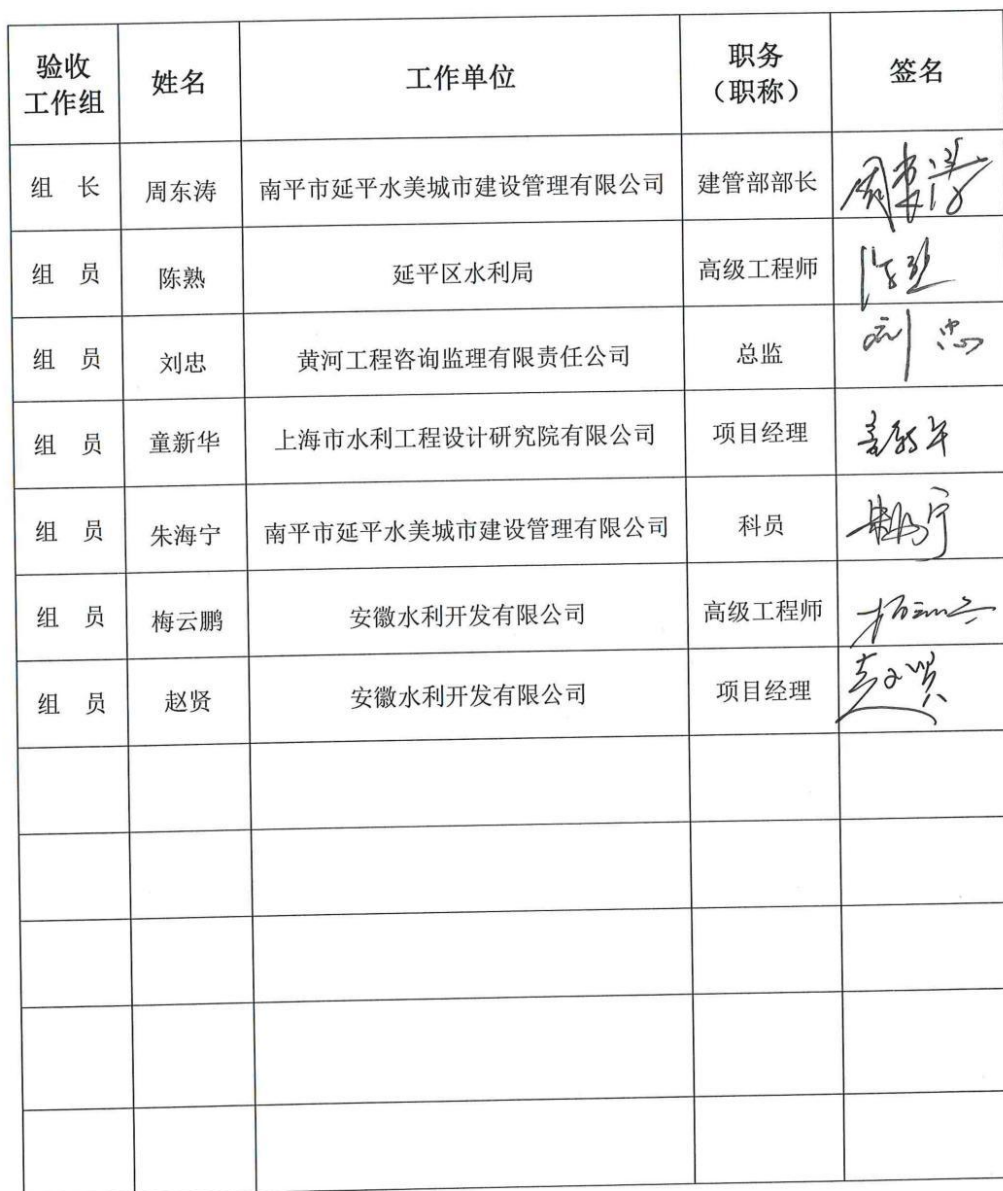 验收
工作组 姓名 工作单位 职务
（职称） 签名
组 长 周东涛 南平市延平水美城市建设管理有限公司 建管部部长 周东涛
组 员 陈熟 延平区水利局 高级工程师 陈熟
组 员 刘忠 黄河工程咨询监理有限责任公司 总监 刘忠
组 员 童新华 上海市水利工程设计研究院有限公司 项目经理
组 员 朱海宁 南平市延平水美城市建设管理有限公司 科员 朱海宁
组 员 梅云鹏 安徽水利开发有限公司 高级工程师
组 员 赵贤 安徽水利开发有限公司 项目经理